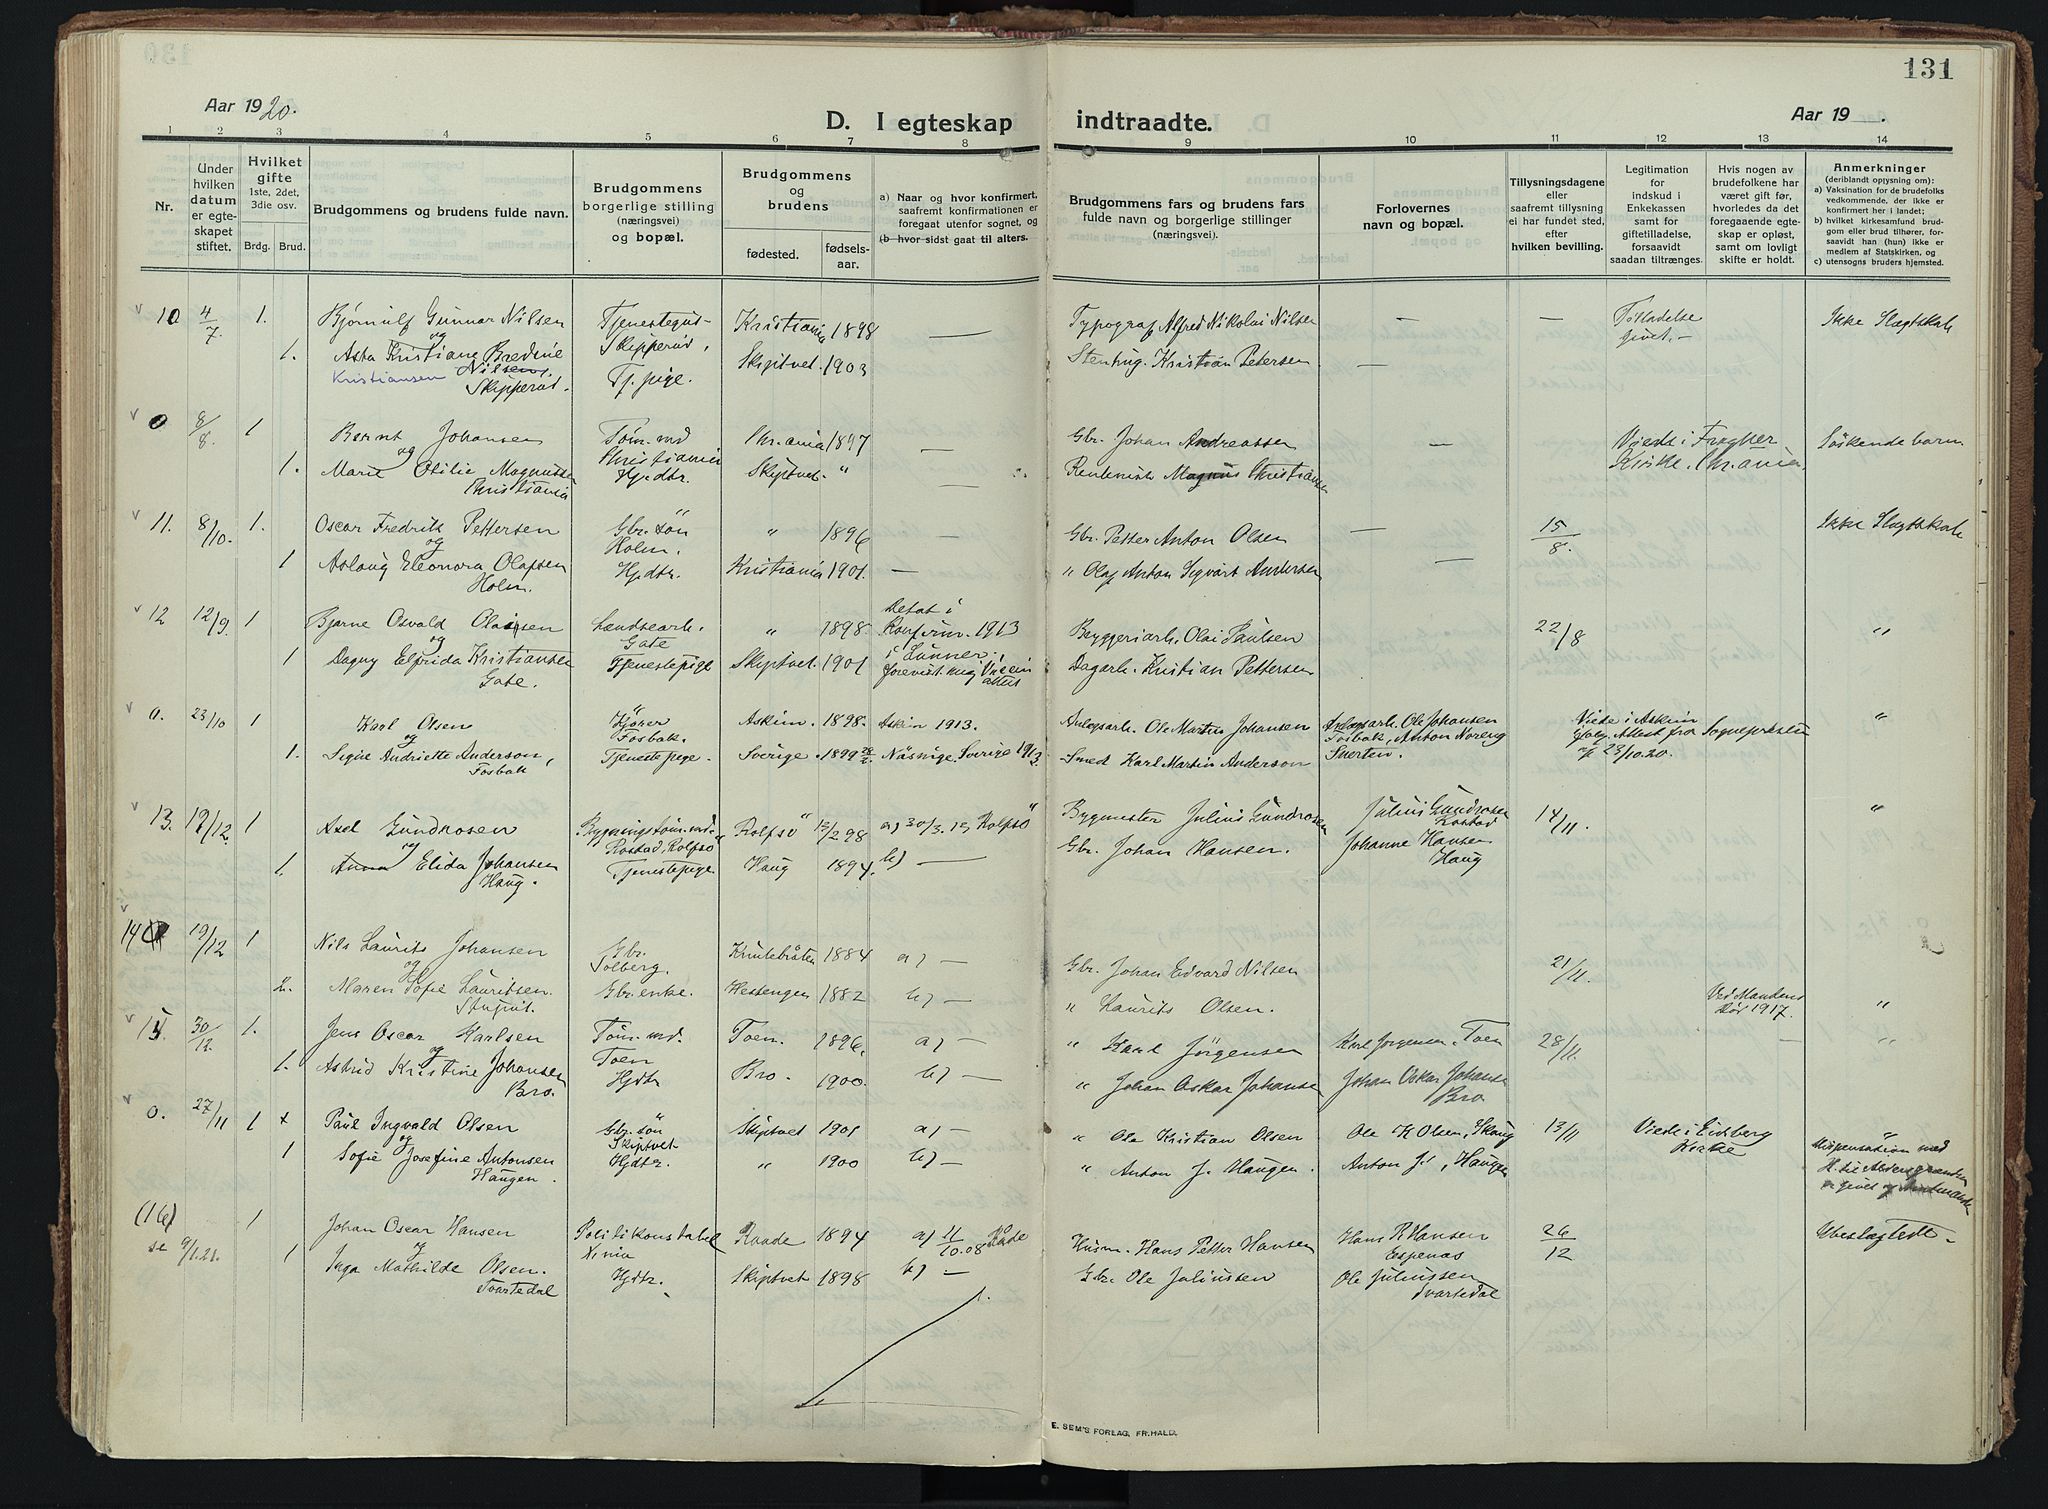 131
Aar 1920.
D. I egteskap indtraadte.
Aar 19 .
1 2 3 4 5 6 7 8 9 10 11 12 13 14
Nr.
Under hvilken datum er egteskapet stiftet.
Hvilket gifte 1ste, 2det, 3die osv.
Brdg. Brud.
Brudgommens og brudens fulde navn.
Brudgommens borgerlige stilling (næringsvei) og bopæl.
Brudgommens og brudens
fødested. fødselsaar.
a) Naar og hvor konfirmert, saafremt konfirmationen er foregaat utenfor sognet, og
(b hvor sidst gaat til alters.
Brudgommens fars og brudens fars fulde navn og borgerlige stillinger (næringsvei).
Forlovernes navn og bopæl.
Tillysningsdagene eller saafremt tillysning ei har fundet sted, efter hvilken bevilling.
Legitimation for indskud i Enkekassen samt for giftetilladelse, forsaavidt saadan tiltrænges.
Hvis nogen av brudefolkene har været gift før, hvorledes da det foregaaende egteskap er opløst, samt om lovligt skifte er holdt.
Anmerkninger (deriblandt opysning om):
a) Vaksination for de brudefolks vedkommende, der ikke er konfirmert her i landet;
b) hvilket kirkesamfund brudgom eller brud tilhører, forsaavidt han (hun) ikke er medlem av Statskirken, og
c) utensogns bruders hjemsted.
10 4/7 1. Bjørnulf Gunnar Nilsen Tjenestegut Kristiania 1898 — Typograf Alfred Nikolai Nilsen — — Tilladelse Ikke Slægtskab
og Skipperud, givet.-
1. Asta Kristiane Bredine Skiptvet 1903 Stenhug. Kristian Petersen —
Kristiansen Nilsen, Tj. pige.
Skipperud.
0 8/8. 1 Bernt Johansen Tøm. md Chr.ania 1897 — Gbr. Johan Andreassen — Viede i Frogner Søskendebarn
og Christiania Kirke, Chr.ania.
1. Marie Otilie Magnussen Hjdtr. Skiptvet " — Magnus Christiansen
Christiania
11. 8/10. 1. Oscar Fredrik Pettersen Gbr. søn " 1896 — Gbr. Petter Anton Olsen — 15/8. Ikke Slægtskab
og Holm.
1 Aslaug Eleonora Olafsen Hjdtr. Kristiania 1901. — " Olaf Anton Sigvart Andersen —
Holm.
12 12/9. 1 Bjarne Osvald Olaisen Landsearb. " 1898 Konfirm. 1913 Bryggeriarb. Olai Paulsen 22/8 "
og Gate i Lunner.
1 Dagny Elfrida Kristiansen Tjenestepige Skiptvet. 1901 Dagarb. Kristian Pettersen
Gate.
0. 23/10 1 Karl Olsen Kjører Askim. 1898. Askim 1913. Anlægsarb. Ole Martin Johansen Anlægsarb. Ole Johansen Viede i Askim "
og Fosbak. Fosbak, Anton Noreng ifølge Attest fra Sognepresten
1. Signe Andriette Anderson, Tjenestepige. Sverige. 1899 Sverige 1913. Smed Karl Martin Anderson af 23/10.20.
Fosbak
13. 12/12. 1 Axel Gundrosen Rolfsø 12/2 98 a) 30/3. 13 Rolfsø Bygmester Julius Gundrosen Julius Gundrosen 14/11. "
og Rostad, Rolfsø Rostad
1. Anna Elida Johansen Tjenestepige Haug 1894. b) — Gbr. Johan Hansen. Johanne Hansen
Haug. Haug
14 19/12 1 Nils Laurits Johansen Gbr. Knutebråten 1884 a) — Gbr. Johan Edvard Nilsen 21/11.
og Solberg.
2. Maren Sofie Lauritsen. Gbr. enke. Hestengen 1882 b) — " Laurits Olsen. Ved Mandens "
død 1917.
15 30/12 1. Jens Oscar Karlsen Tøm. md. Toen. 1896. a) — " Karl Jørgensen Karl Jørgensen, Toen 28/11. — "
og Toen
1. Astrid Kristine Johansen Hjdtr Bro. 1900. b) — " Johan Oskar Johansen Johan Oskar Johansen
Bro. Bro
0. 27/11 1 x Paul Ingvald Olsen Gbr. søn Skiptvet 1901 a) — " Ole Kristian Olsen Ole K Olsen, Skaug 13/11 Viede i Eidsberg "
og Skiptvet Kirke Dispensation med
1 Sofie Josefine Antonsen Hjdtr. " 1900 b) — " Anton J. Haugen. Anton J., Haugen
Haugen.
(16) 1 Johan Oscar Hansen Politikonstabel Raade 1894 a) 11/10.08 Råde Husm. Hans Petter Hansen Hans P. Hansen 26/12 Ubeslægtede.
se 9/1.21. og Xinia Espenæs
1 Inga Mathilde Olsen. Hjdtr. Skiptvet 1898 b) — Gbr. Ole Juliussen Ole Juliussen
Svartedal Svartedal
E. SEM'S FORLAG, FR.HALD.